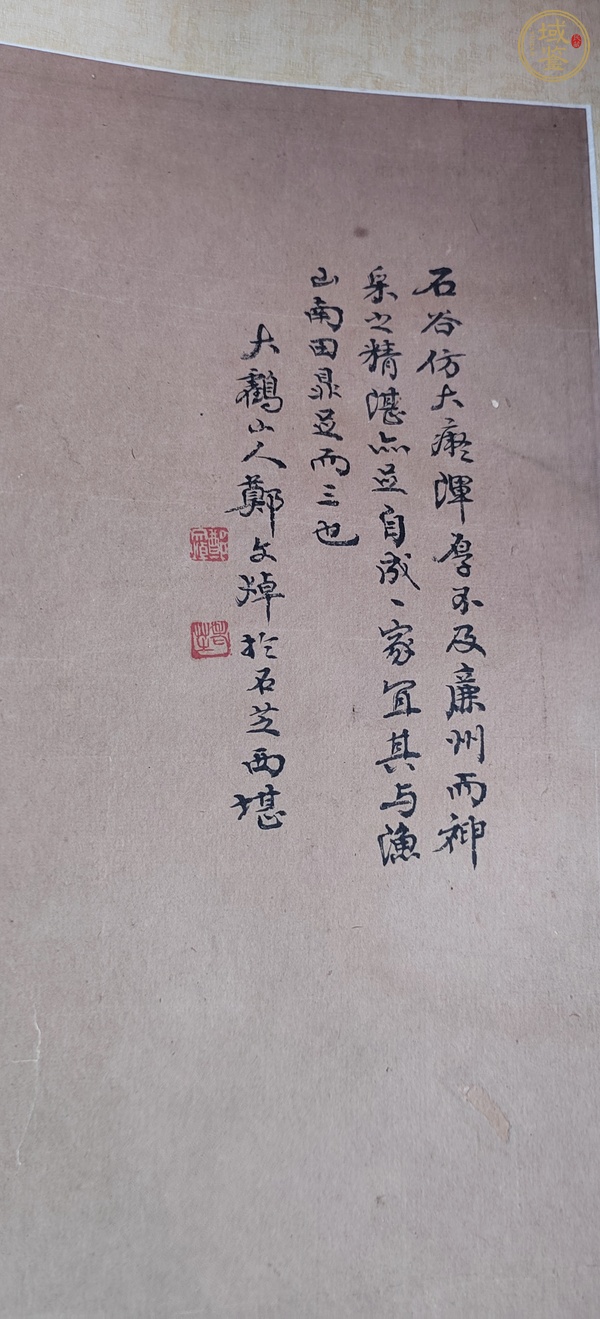 石谷仿大癡渾厚不及廉州而神
采之精湛亦並自成一家宜其与漁
山南田鼎足而三也
大鶴山人鄭文焯於石芝西堪
域鉴